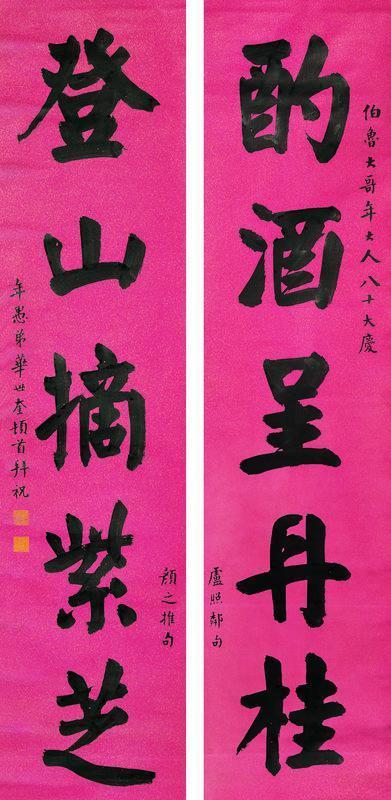 伯魯大哥年大人八十大慶
酌酒呈丹桂
盧照鄰句
登山摘紫芝
顏之推句
年愚弟華世奎頓首拜祝